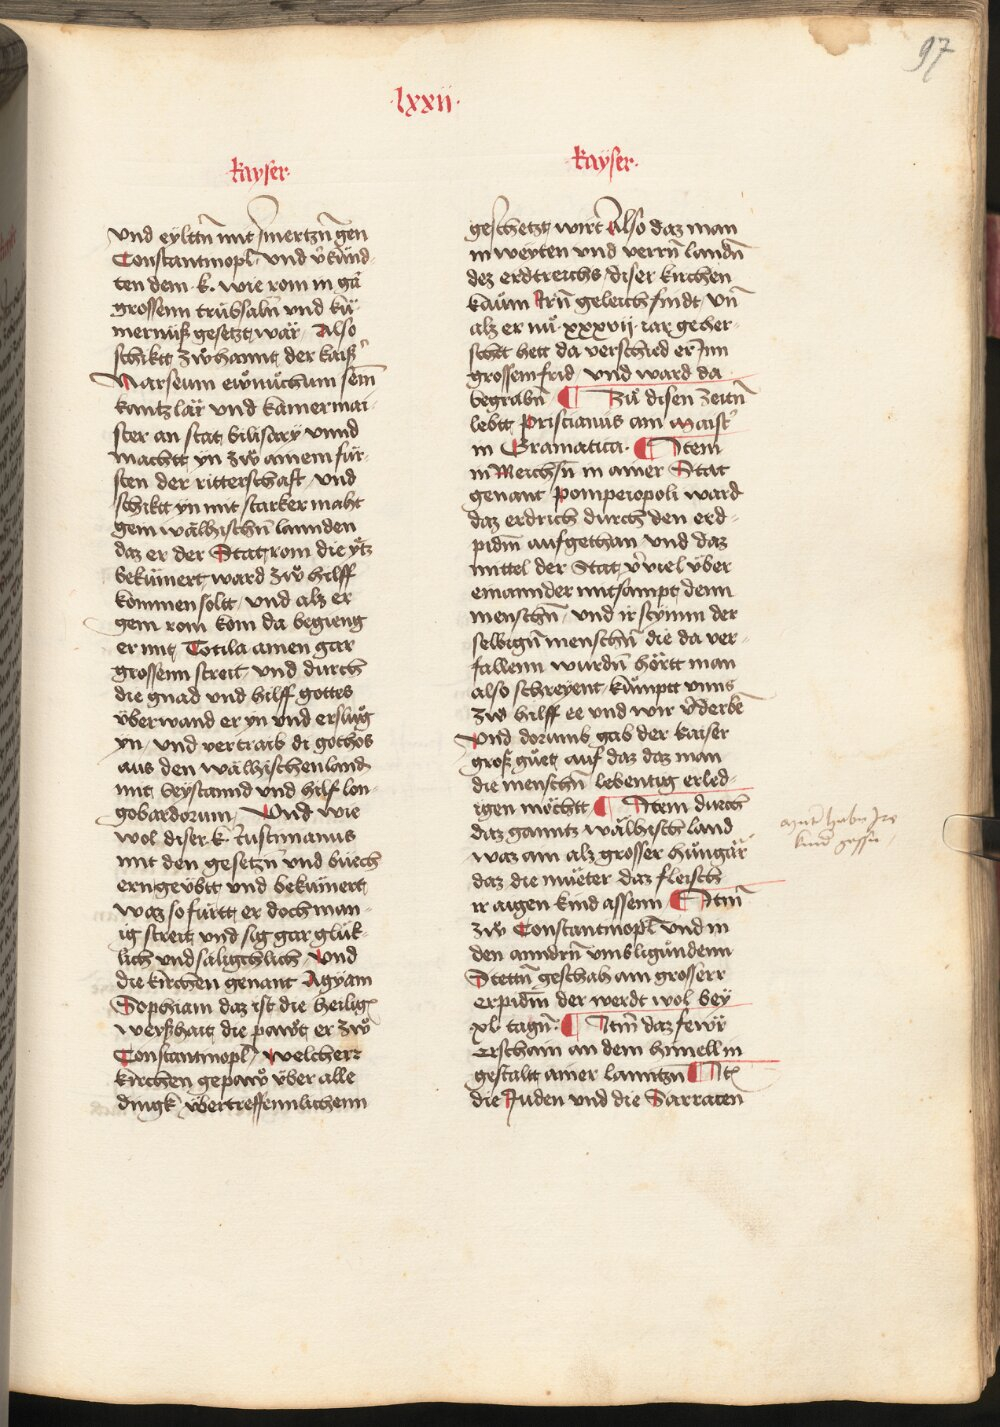 97
·lxxii·
kayser·
und eyltñ mit smertzñ gen
Constantinopl̄ und v̄künd-
ten dem ·k· wie rom in gar
grossenn trübsalñ und kü-
mernüß gesetzt wär Also
schiktt zwͦ hannt der kaiß
Narseum ewnuͤchum sein̄
kantzlär und kamermai-
ster an stat bilisary unnd
machtt yn zwͦ ainem für-
sten der ritterschaft und
schiktt yn mit starker maht
gem wälhischñ lannden
daz er der Stat rom die ytz
bekümert ward zwͦ hilff
kömmen soltt und alz er
gem rom kom da begieng
er mit Totila ainen gar
grossenn streit und durch
die gnad und hilff gottes
überwand er yn und ersluͦg
yn und vertraib di gothos
aus den wälhischen land
mit beystannd und hilf lon-
gobardorum Und wie
wol diser ·k· Iustinianus
mit den gesetzñ und büech
ern geübtt und bekümert
waz so fürtt er doch man-
ig streit und sig gar glük-
lich und säligchlich Und
die kirchen genant Agyam
Sophiam daz ist die heilig
weyßhait die pawt er zwͦ
Constantinopl̄ welcherr
kirchen gepaw über alle
dingk übertreffennlichenn
kayser·
geschetzt wirt Also daz man
in weyten und verrñ landñ
dez erdtreichs diser kirchen
kaum Irñ geleich findt Vñ
alz er nuͦ xxxvij iar geher-
scht hett da verschied er Inn
grossem frid und ward da
begrabñ ¶ Zuͦ disen zeittñ
lebtt Priscianus ain maistr̄
in Gramatica· ¶ Item
in Meichsñ in ainer Stat
genant Pompeiopoli ward
daz erdrich durch den erd-
pidm̄ aufgethan und daz
mittel der Stat v̄viel über
einannder mitsampt denn
menschñ und ir stymm der
selbigñ menschñ die da ver-
fallenn wurdñ hörtt man
also schreyent kumptt unns
zwͦ hilff ee und wir v̄derbē
Und dorumb gab der kaiser
groß guͤet auf daz daz man
die menschñ lebentig erled-
igen möchtt ¶ Item durch
daz ganntz wälhisch land
waz ain alz grosser hungär
daz die muͤeter daz fleisch
ir aigen kind assenn ¶ Itm̄
zwͦ Constantinopl̄ und in
den anndrñ umbligundenn
Stettñ geschah ain grosserr
erpidm̄ der werdt wol bey
xl tagñ· ¶ Itm̄ daz fewͤr
erschain an dem himell in
gestaltt ainer lanntzñ ¶ It̄
die Juden und die Sarracen
mütt habn Ire
kind gessn